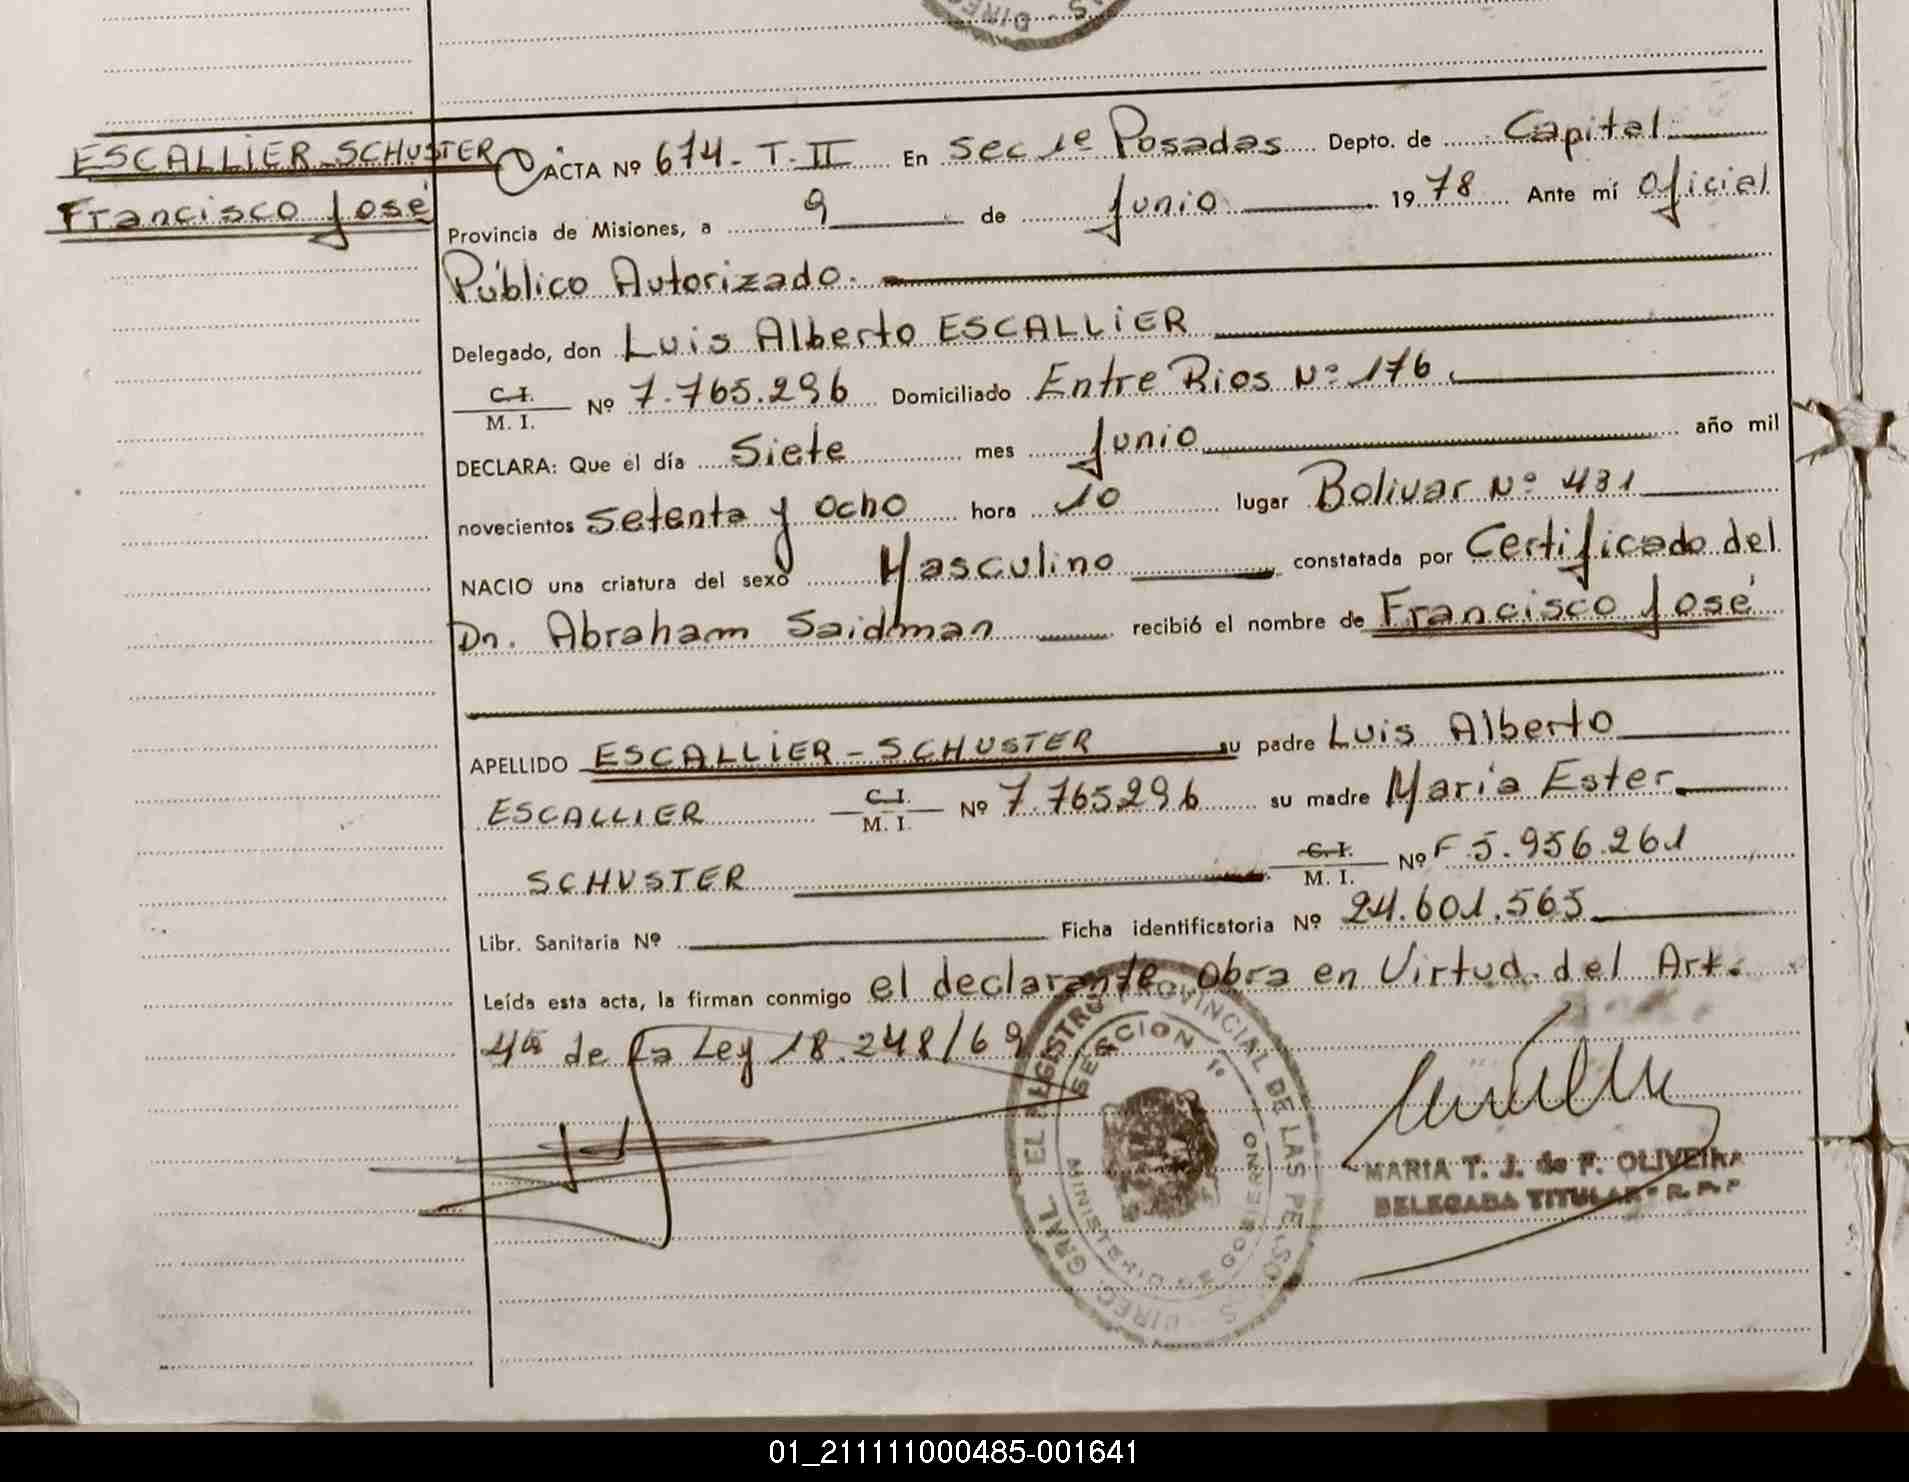 ESCALLIER-SCHUSTER
Francisco José
ACTA Nº 674- T-II En Sec 1º Posadas Depto. de Capital
Provincia de Misiones, a 9 de Junio 1978 Ante mí Oficial
Público Autorizado.
Delegado, don Luis Alberto ESCALLIER
C.I. M.I. Nº 7.765.296 Domiciliado Entre Rios Nº 176.
DECLARA: Que el día Siete mes Junio año mil
novecientos Setenta y Ocho hora 10 lugar Bolivar Nº 431
NACIO una criatura del sexo Masculino constatada por Certificado del
Dr. Abraham Saidman recibió el nombre de Francisco José
APELLIDO ESCALLIER-SCHUSTER su padre Luis Alberto
ESCALLIER C.I. M.I. Nº 7.765.296 su madre María Ester
SCHUSTER C.I. M.I. Nº F 5.956.261
Libr. Sanitaria Nº Ficha identificatoria Nº 24.601.565
Leída esta acta, la firman conmigo el declarante. Obra en Virtud del Art.
4º de la Ley 18.248/69
REGISTRO PROVINCIAL DE LAS PERSONAS
SECCION 1º
MARIA T. J. de F. OLIVEIRA
DELEGADA TITULAR - R. P. P.
01_211111000485-001641